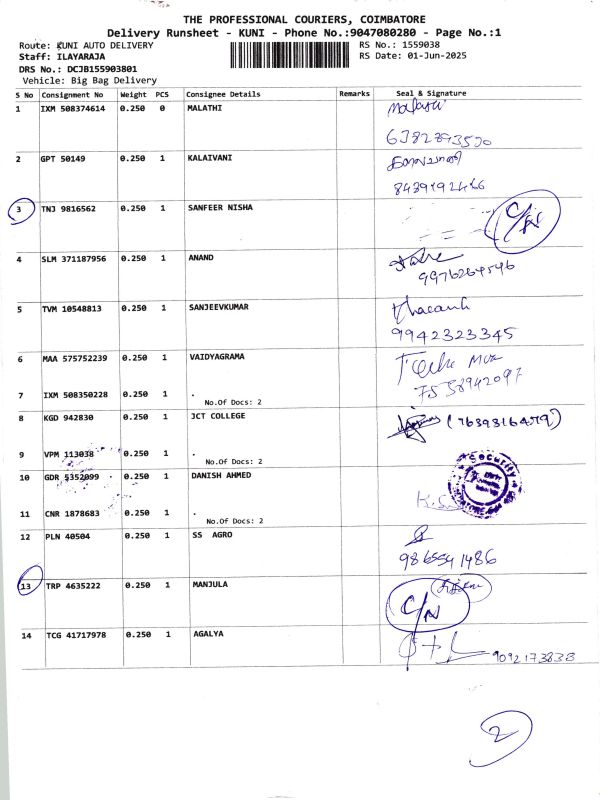 THE PROFESSIONAL COURIERS, COIMBATORE
Delivery Runsheet - KUNI - Phone No.:9047080280 - Page No.:1
Route: KUNI AUTO DELIVERY
Staff: ILAYARAJA
DRS No.: DCJB155903801
Vehicle: Big Bag Delivery
RS No.: 1559038
RS Date: 01-Jun-2025
S No Consignment No Weight PCS Consignee Details Remarks Seal & Signature
1 IXM 508374614 0.250 0 MALATHI
2 GPT 50149 0.250 1 KALAIVANI
8439192466
3 TNJ 9816562 0.250 1 SANFEER NISHA C/N
4 SLM 371187956 0.250 1 ANAND
9976264546
5 TVM 10548813 0.250 1 SANJEEVKUMAR
9942323345
6 MAA 575752239 0.250 1 VAIDYAGRAMA
7538942097
7 IXM 508350228 0.250 1 .
No.Of Docs: 2
8 KGD 942830 0.250 1 JCT COLLEGE (7639316479)
9 VPM 113038 0.250 1 .
No.Of Docs: 2
10 GDR 5352099 0.250 1 DANISH AHMED Security
11 CNR 1878683 0.250 1 .
No.Of Docs: 2
12 PLN 40504 0.250 1 SS AGRO
9865541486
13 TRP 4635222 0.250 1 MANJULA
C/N
14 TCG 41717978 0.250 1 AGALYA
9092173833
2